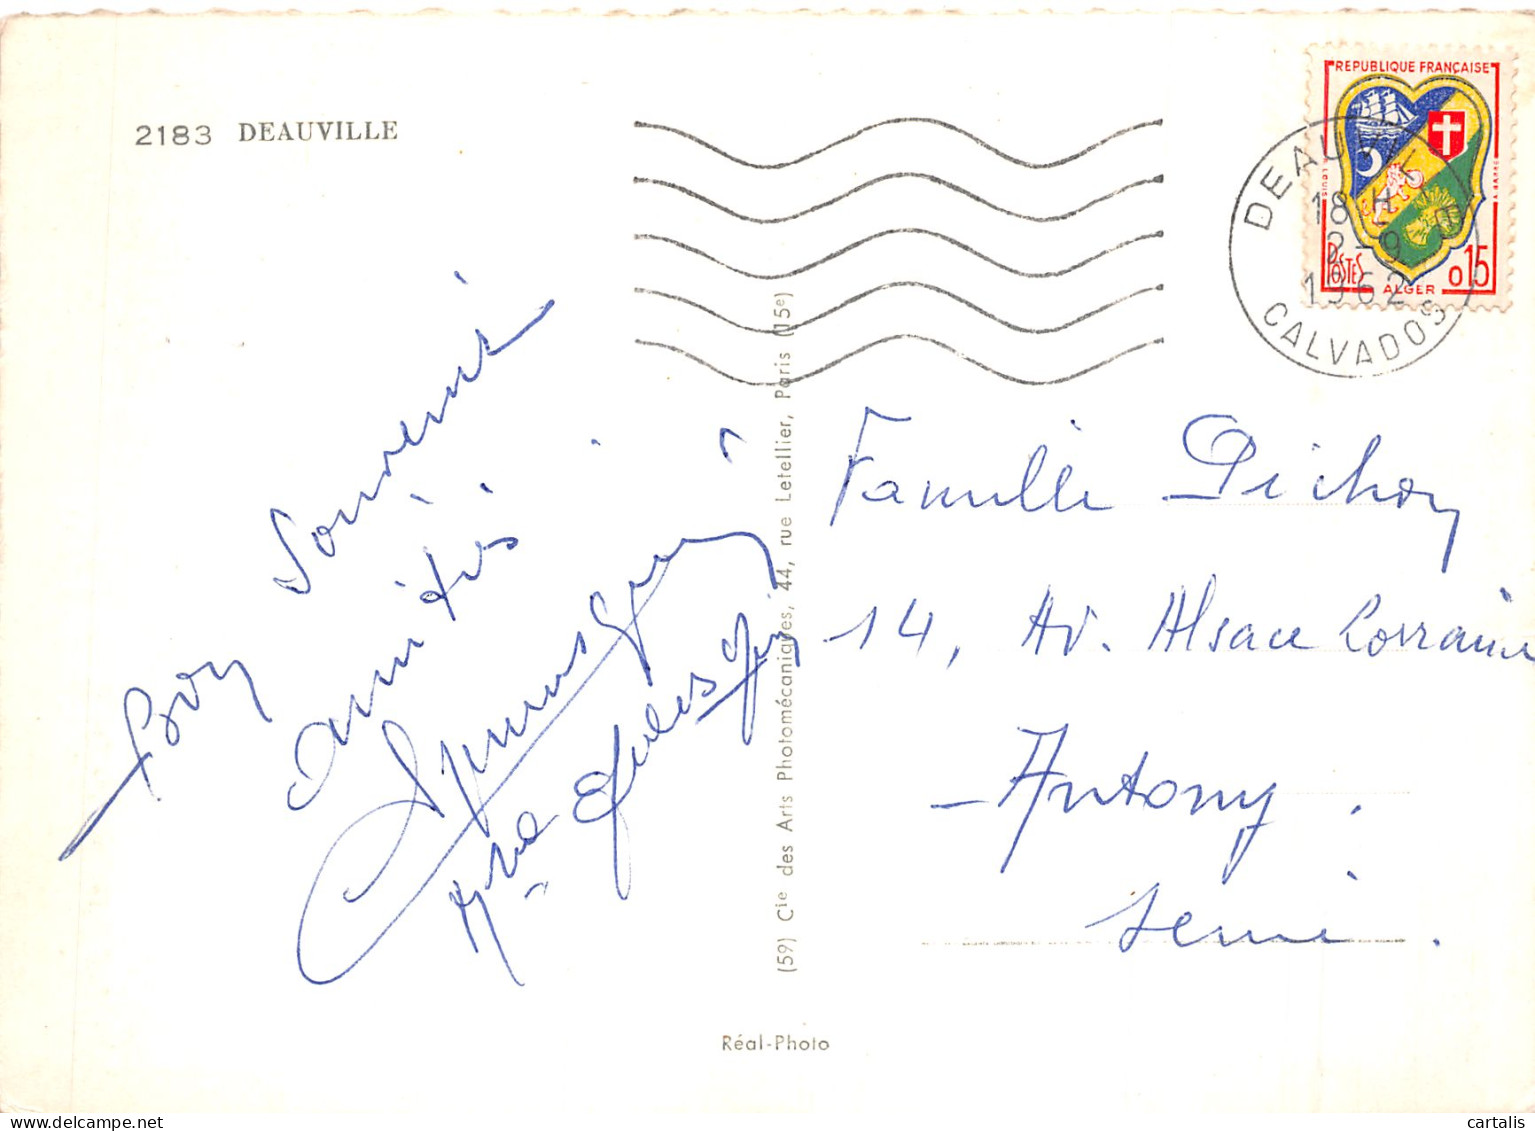 2183 DEAUVILLE
REPUBLIQUE FRANÇAISE
POSTES
ALGER
0,15
DEAUVILLE
18 H
2-9
1962
CALVADOS
Bon Souvenir
amitiés
Famille Pichon
14, Av. Alsace Lorraine
- Antony.
Seine.
(59) Cie des Arts Photomécaniques, 44, rue Letellier, Paris (15e)
Réal-Photo
cartalis